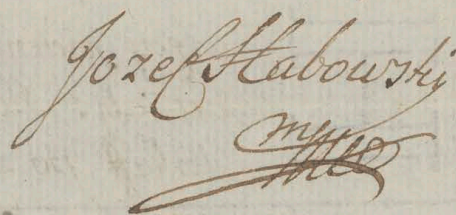 Jozef Słabowskiy
mp